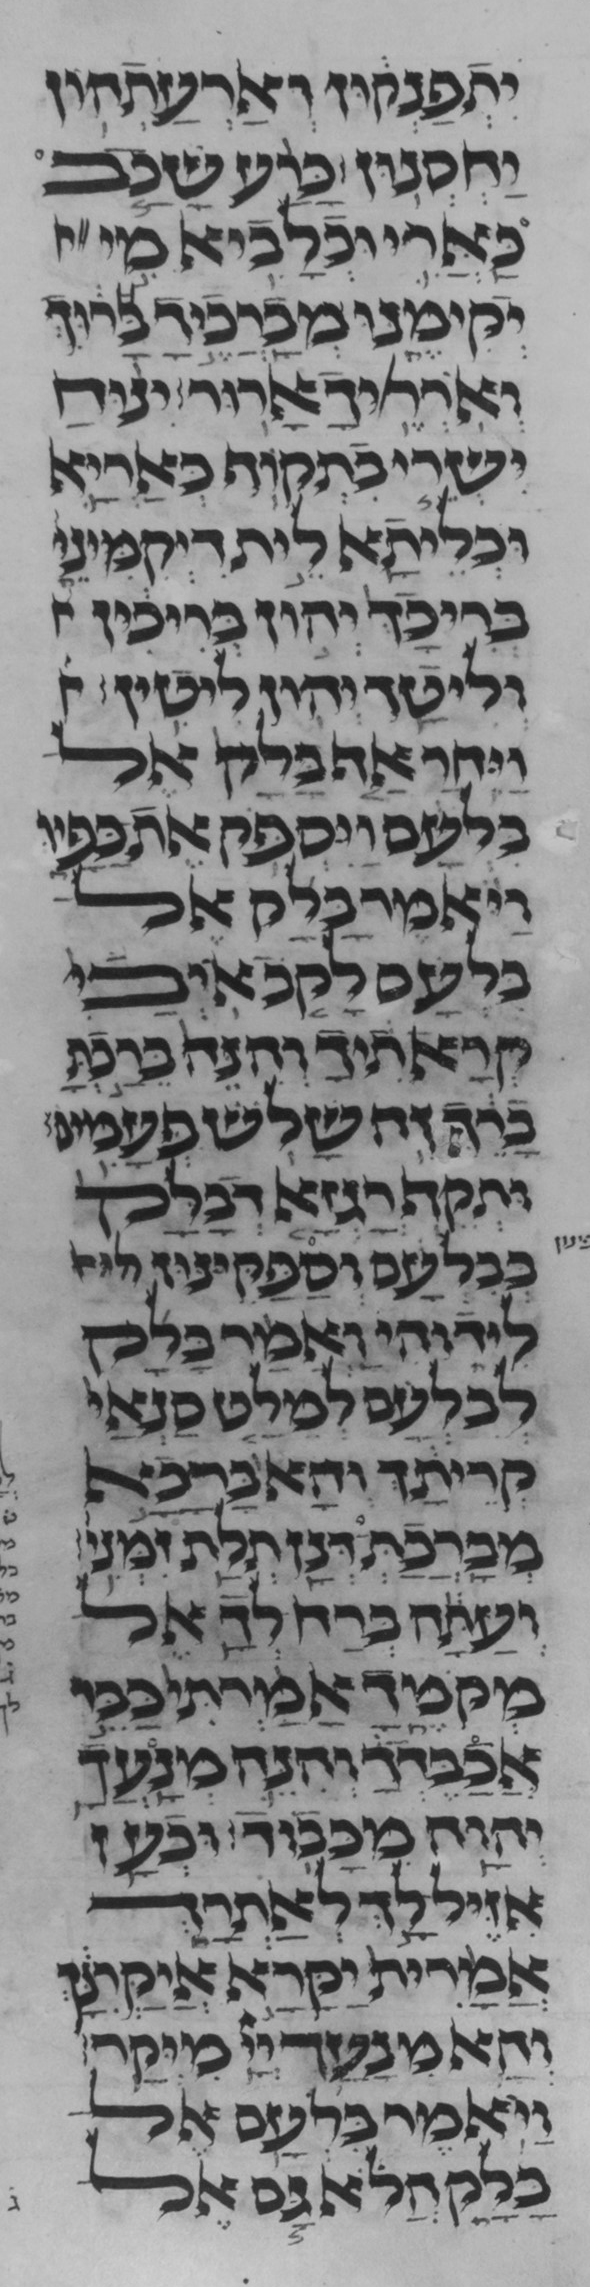 יִתְפַּנְקוּן וְאַרְעָתְהוֹן
יַחְסְנוּן׃ כָּרַע שָׁכַב
כַּאֲרִי וּכְלָבִיא מִי
יְקִימֶנּוּ מְבָרֲכֶיךָ בָרוּךְ
וְאֹרְרֶיךָ אָרוּר׃ יְנוּחַ
יִשְׁרֵי בִּתְקוֹף כְּאַרְיָא
וּכְלֵיתָא לֵית דִּיקִימִינֵּי
בְּרִיכָךְ יְהוֹן בְּרִיכִין
וְלִיטָךְ יְהוֹן לִיטִין׃
וַיִּחַר אַף בָּלָק אֶל
בִּלְעָם וַיִּסְפֹּק אֶת כַּפָּיו
וַיֹּאמֶר בָּלָק אֶל
בִּלְעָם לָקֹב אֹיְבַי
קְרָאתִיךָ וְהִנֵּה בֵּרַכְתָּ
בָרֵךְ זֶה שָׁלֹשׁ פְּעָמִים׃
וּתְקֵף רֻגְזָא דְבָלָק
בְּבִלְעָם וּסְפָקִינוּן
לִידוֹהִי וַאֲמַר בָּלָק
לְבִלְעָם לְמֵילַט סָנְאַי
קְרֵיתָךְ וְהָא בָּרָכָא
מְבָרְכַת דְּנָן תְּלָת זִמְנִי
וְעַתָּה בְּרַח לְךָ אֶל
מְקֹמֶךָ אָמַרְתִּי כַּבֵּד
אֲכַבֶּדְךָ וְהִנֵּה מְנָעֲךָ
יְהוָה מִכָּבוֹד׃ וּכְעַן
אִיזֵיל לָךְ לְאַתְרָךְ
אֲמַרִית יַקָּרָא אֲיַקְּרִנָּךְ
וְהָא מַנְעָךְ יְיָ מִיקָר׃
וַיֹּאמֶר בִּלְעָם אֶל
בָּלָק הֲלֹא גַּם אֶל